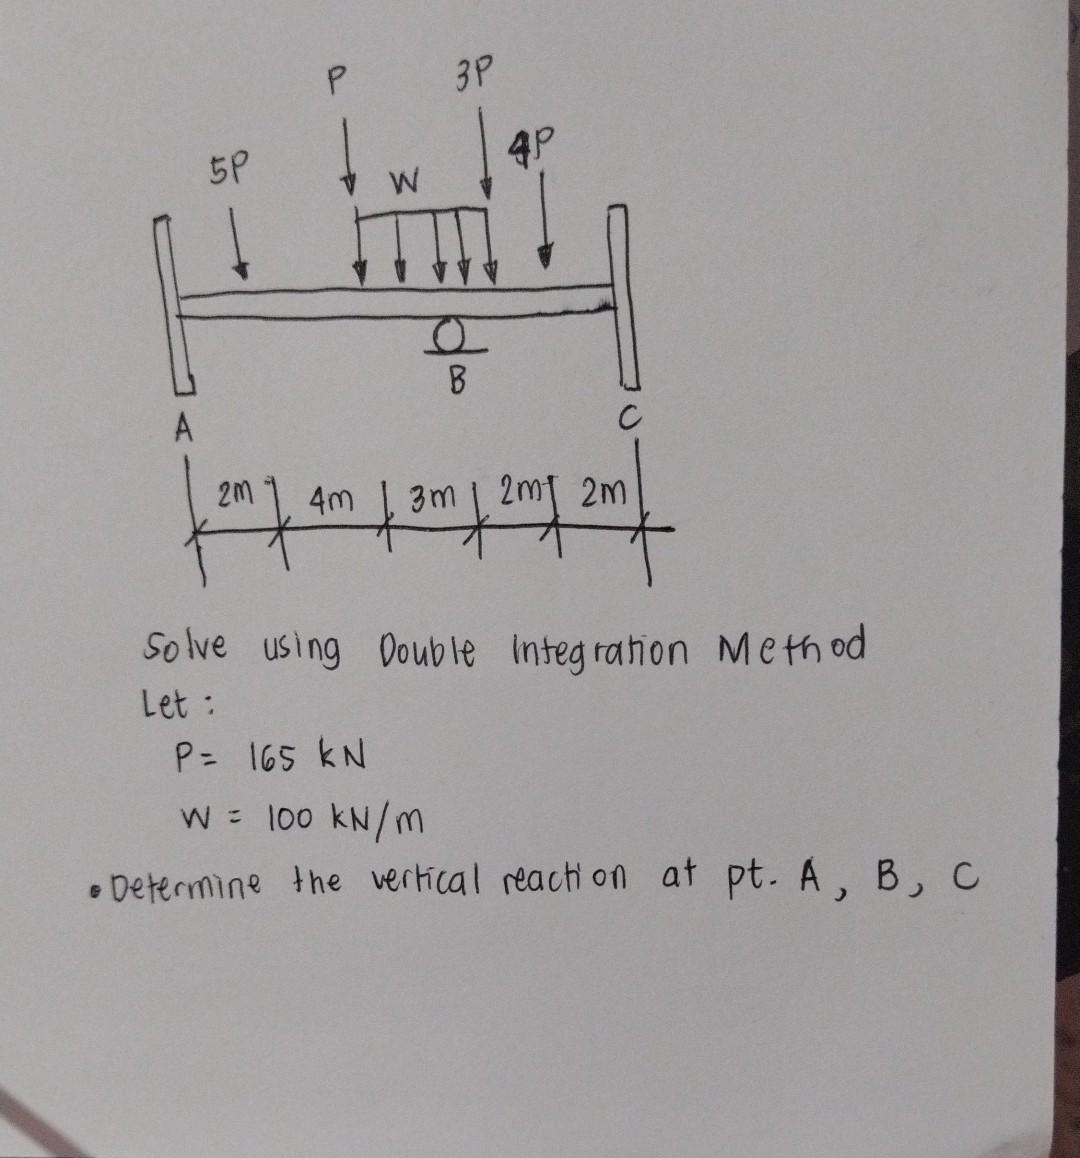 P 3P
5P W 4P
B
A C
2m 4m 3m 2m 2m
Solve using Double Integration Method
Let :
P = 165 kN
W = 100 kN/m
• Determine the vertical reaction at pt. A, B, C